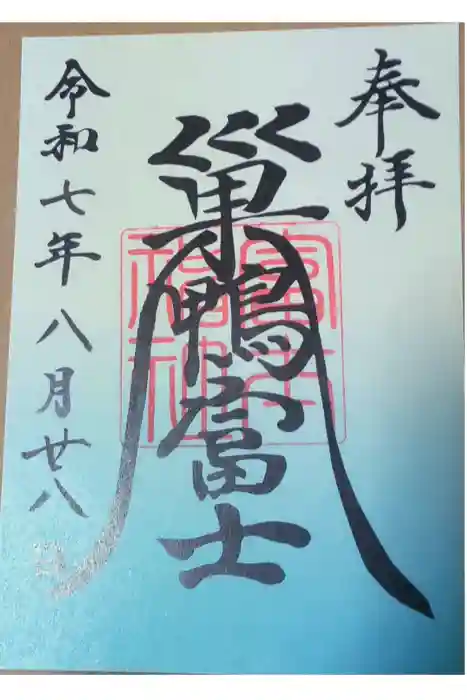 奉拝
巣鴨富士
令和七年八月廿八